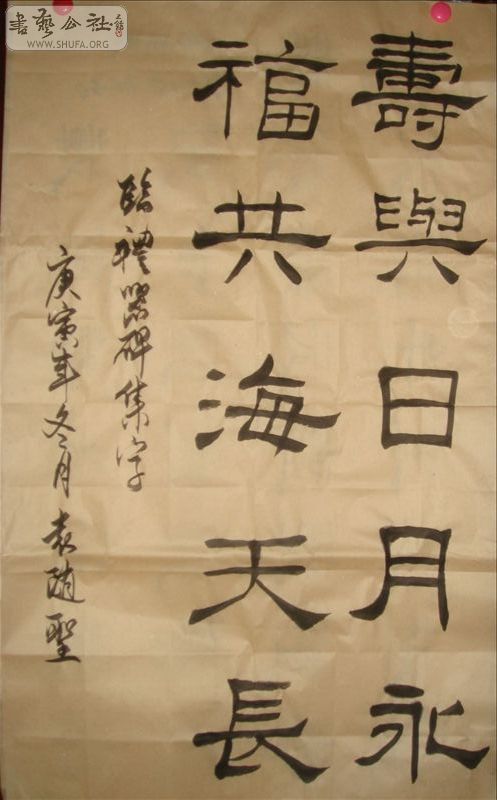 壽與日月永
福共海天長
臨禮器碑集字
庚寅年冬月 袁随聖
書藝公社
WWW.SHUFA.ORG